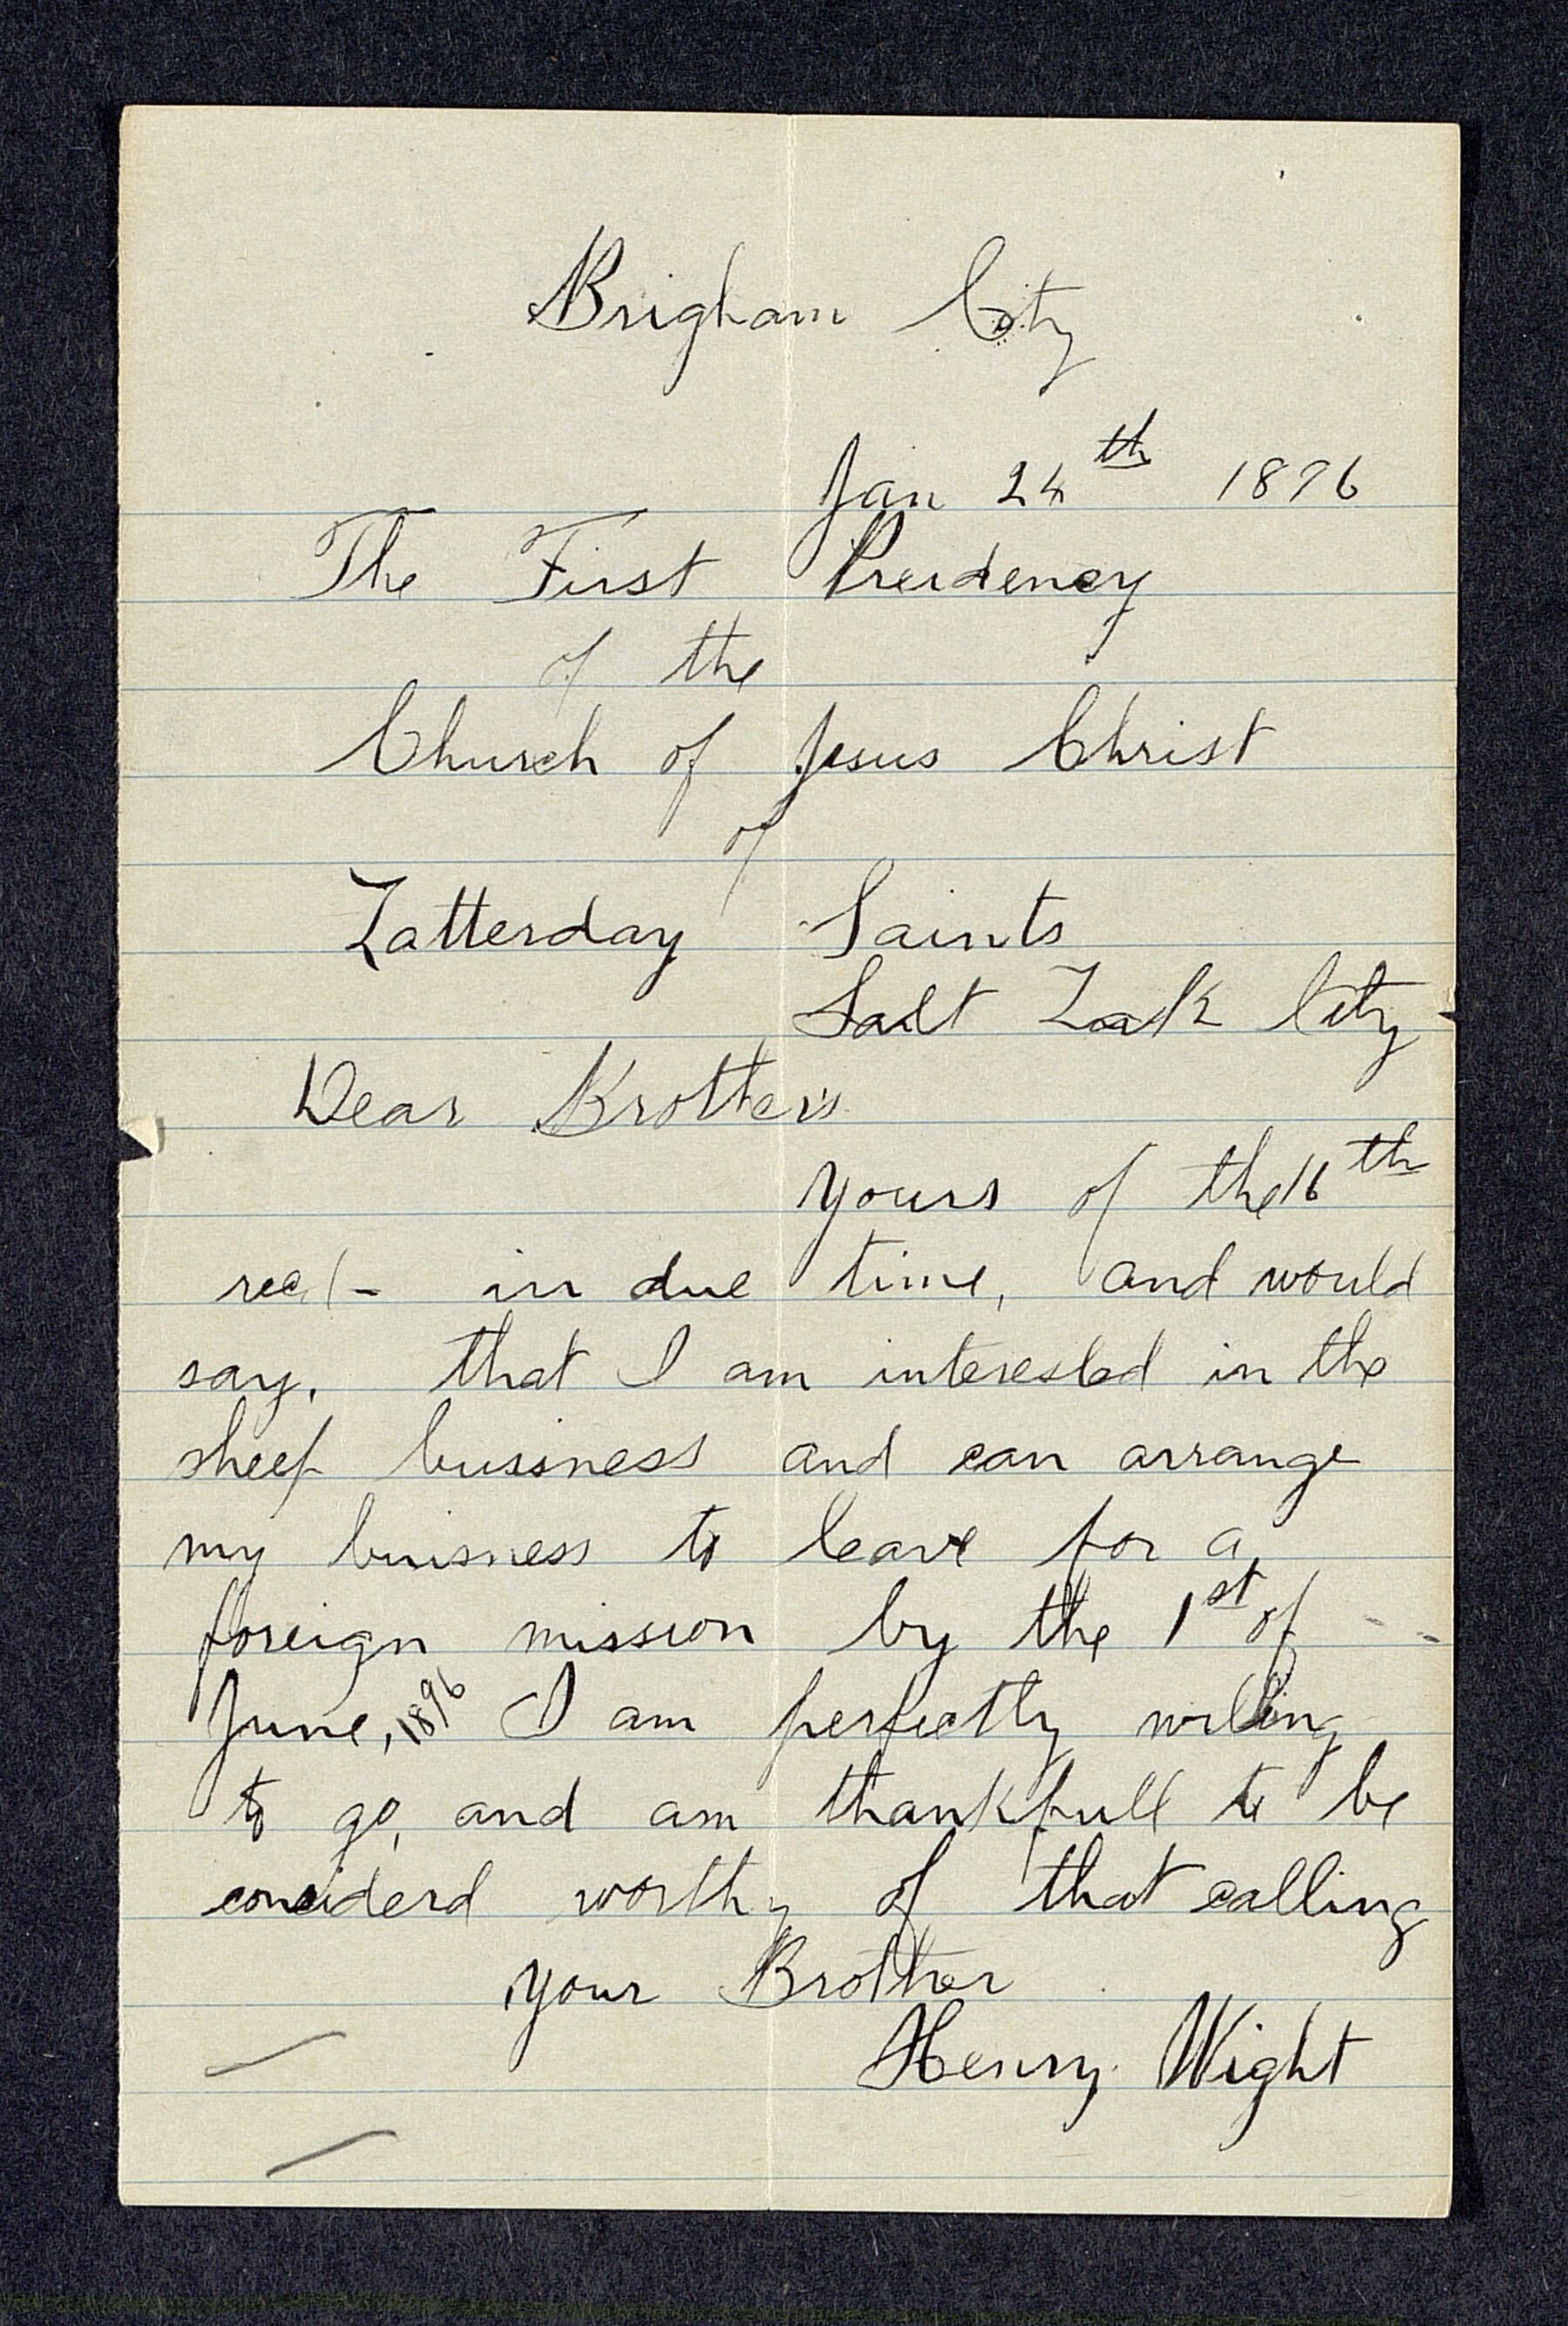 Brigham City
Jan 24th 1896
The First Presidency
of the
Church of Jesus Christ
of
Latterday Saints
Salt Lak City
Dear Brothers
yours of the 16th
recd- in due time, and would
say, that I am interested in the
sheep bussness and can arrange
my buisness to leave for a
foreign mission by the 1st of
June, 1896 I am perfectly willing
to go, and am thankfull to be
considerd worthy of that calling
your Brother
Henry Wight